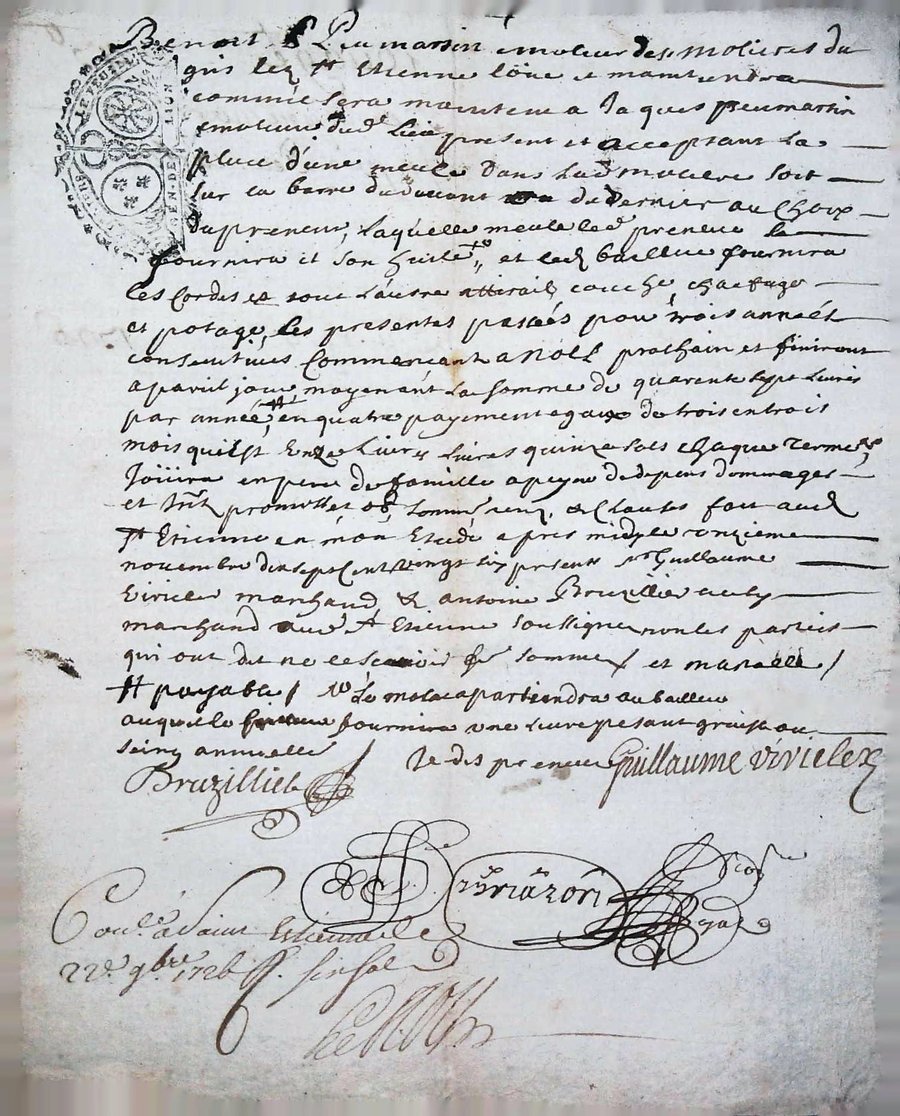 Benoist Peumartin émoleur des molieres du
gris lez St Etienne loüe et maintiendra
comme sera maintenu a Jaques peumartin
émoleur dud. Lieu present et acceptant La
place d'une meule dans Lad. moliere soit
sur la barre du devant ou du dernier au Choix
du preneur, Laquelle meule led preneur
fournira et son huile, et led bailleur fournira
les Cordes et tout L'autre attirail couche, chaufage
et potage, les presentes passées pour trois années
consecutives Commençant a noël prochain et finiront
a pareil jour moyenant La somme de quarente sept Livres
par année, en quatre payement egaux de trois en trois
mois qui est onze Livres quinze sols chaque terme
Joüira en pere de famille a peyne de depens dommages
et promettet obl. & Clauses fait aud
St Etienne en mon Etude apres midy le onzieme
novembre dix sept Cent vingt six presents sr Guillaume
Virieler marchand, & antoine Bruzillier aussy
marchand aud St Etienne soussignez non les parties
qui ont dit ne le scavoir de sommes et
payable La molac apartiendra au bailleur
auquel le fournira une Livre pesant graisse au
annuelle
Le dis preneur Guillaume virieler
Bruzillier
Con.lé a Saint Estienne le
22e 9bre 1726